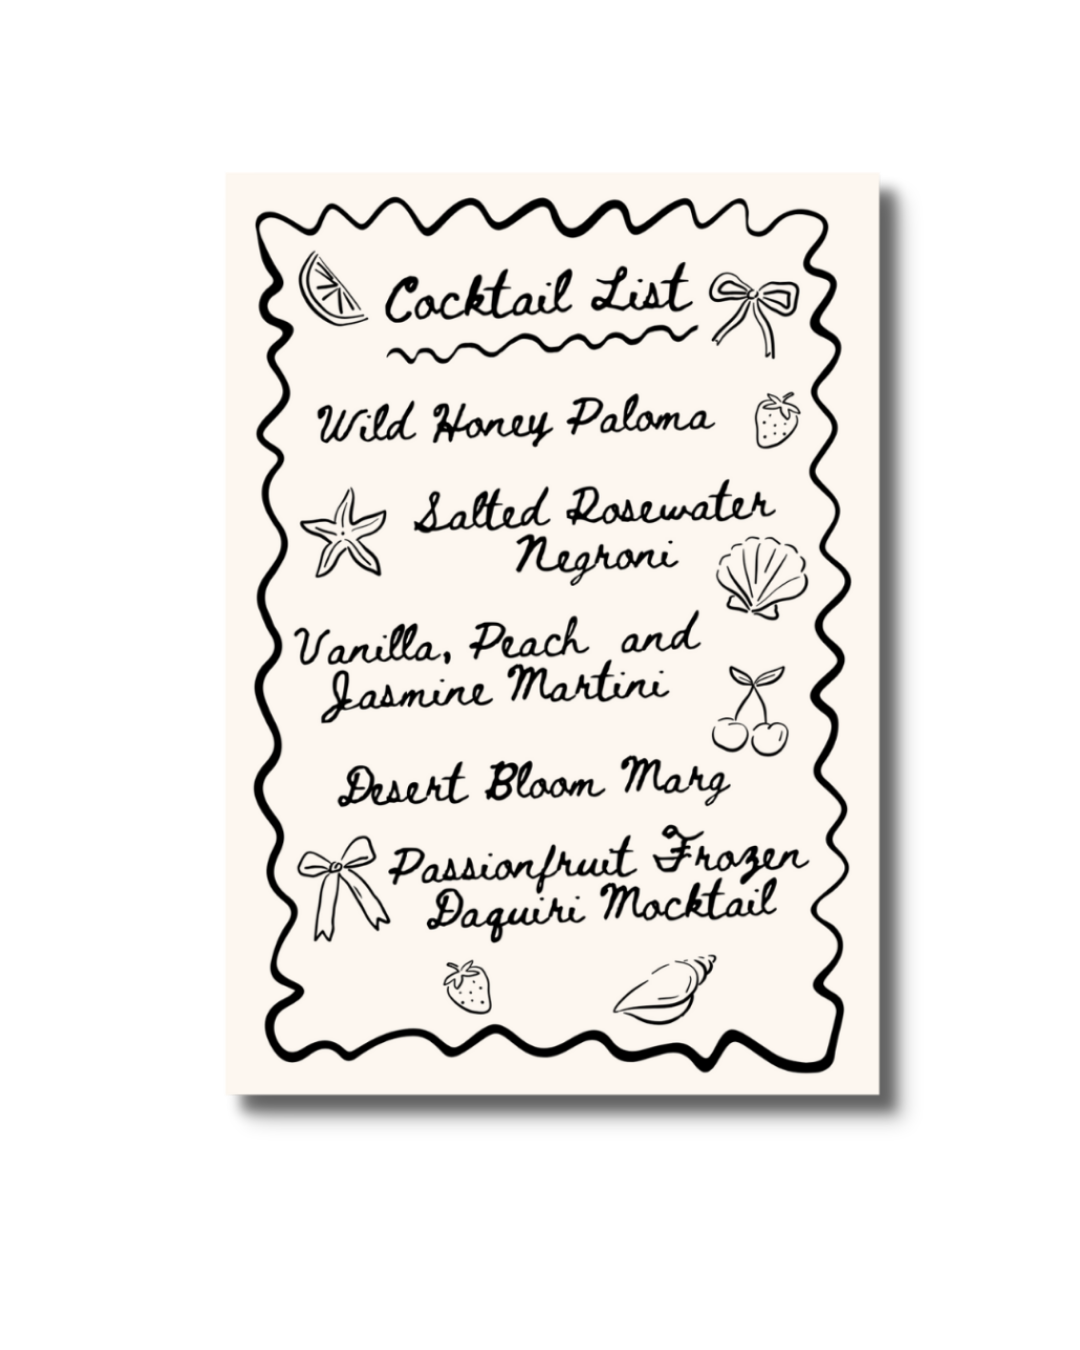 Cocktail List
Wild Honey Paloma
Salted Rosewater
Negroni
Vanilla, Peach and
Jasmine Martini
Desert Bloom Marg
Passionfruit Frozen
Daquiri Mocktail